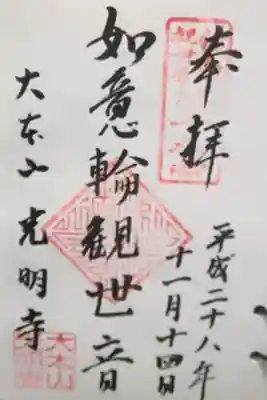 奉拝
平成二十八年
十一月十四日
如意輪観世音
大本山光明寺
大本山